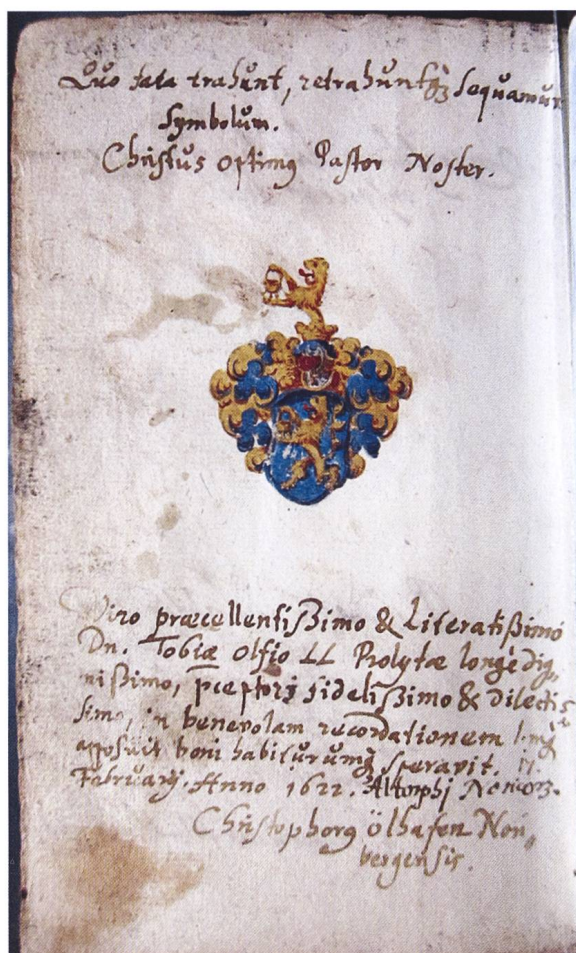 Quo fata trahunt, retrahuntq; sequamur
Symbolum.
Christus Optimus Pastor Noster.
Viro præcellentißimo & Literatißimo
Dn. Tobiæ Olfio LL Prolytæ longè dig,
nißimo, pceptori fidelißimo & dilectis
simo, in benevolam recordationem
apposuit boni habiturumq; speravit.
Februarij. Anno 1622. Altorphj Noricor.
Christophorus ölhafen Nori,
bergensis.